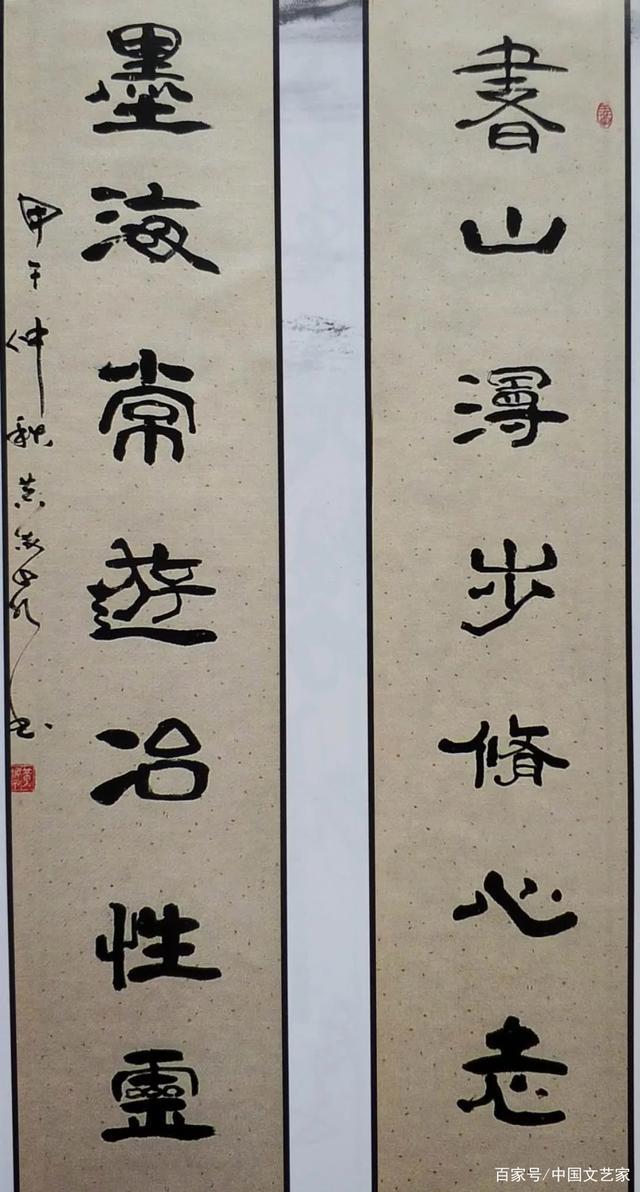 書山漫步脩心志
墨海常遊冶性靈
甲午仲秋黄书
百家号/中国文艺家